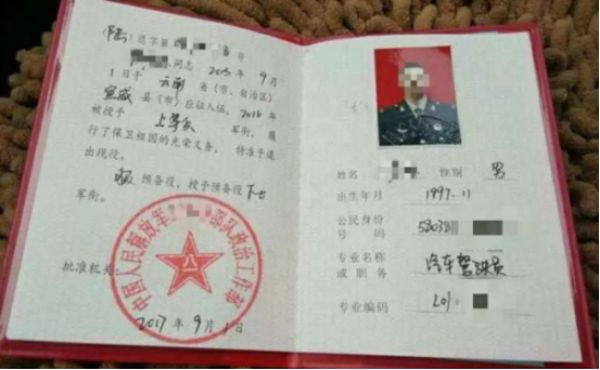 (陆)退字第 号
同志2015年9月
1日于云南省(市、自治区)
宣威县(市)应征入伍,2016年
被授予上等兵军衔,履
行了保卫祖国的光荣义务,特准予退
出现役。
服预备役,授予预备役下士
军衔。
批准机关:
中国人民解放军 部队政治工作部
2017年9月1日
姓名 性别 男
出生年月 1997.11
公民身份
号码 53038
专业名称
或职务 汽车驾驶员
专业编码 L01